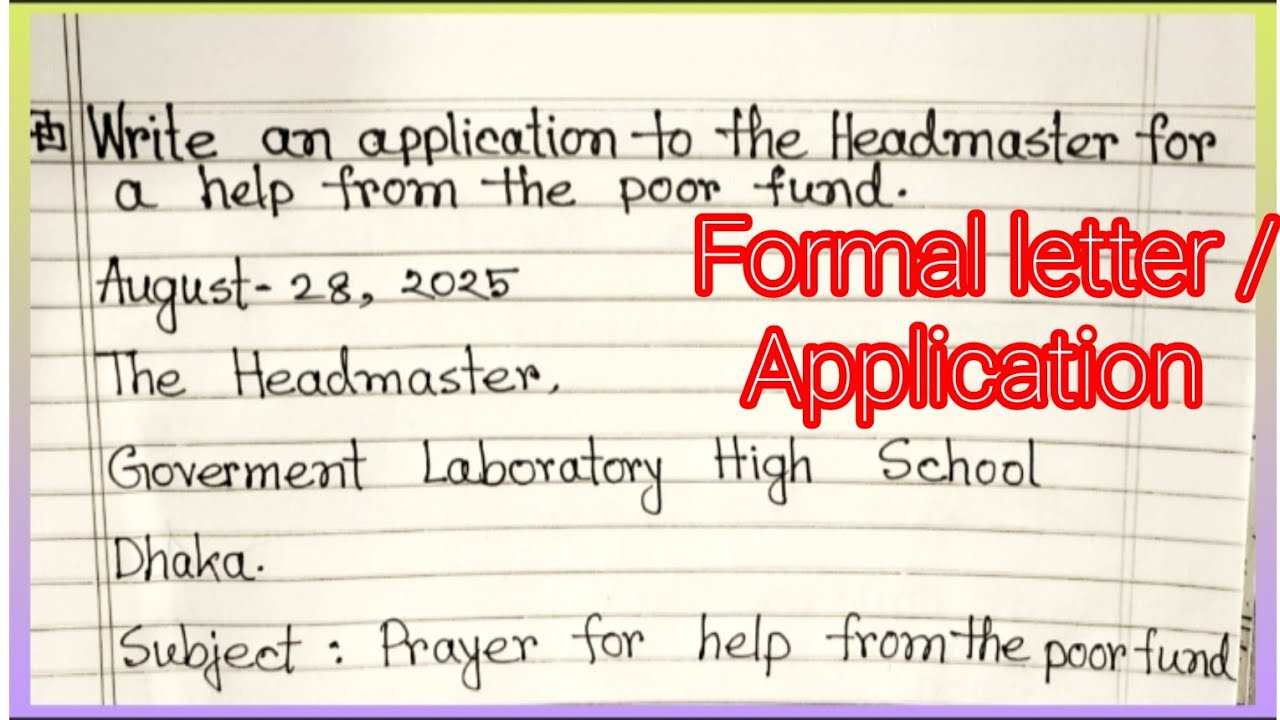 Write an application to the Headmaster for
a help from the poor fund.
August- 28, 2025
Formal letter /
Application
The Headmaster,
Goverment Laboratory High School
Dhaka.
Subject : Prayer for help from the poor fund